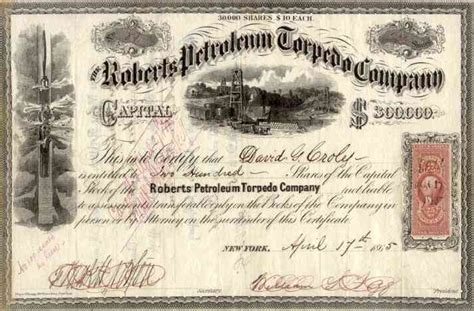 30000 SHARES $10 EACH.
THE Roberts Petroleum Torpedo Company
CAPITAL $ 300,000
This is to Certify that David G. Croly
is entitled to Two Hundred Shares of the Capital
Stock of the Roberts Petroleum Torpedo Company not liable
to assessment, transferable only on the Books of the Company in
person or by Attorney on the surrender of this Certificate
NEW YORK, April 17th 1865
Secretary.